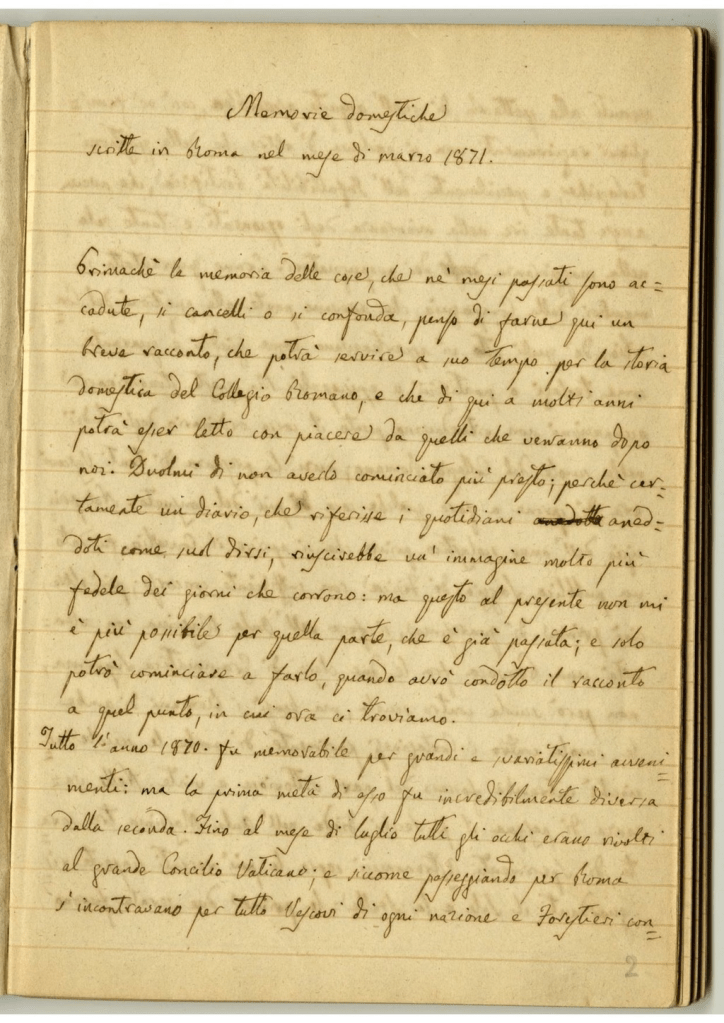 Memorie domestiche
scritte in Roma nel mese di marzo 1871.
Primachè la memoria delle cose, che ne' mesi passati sono ac=
cadute, si cancelli o si confonda, penso di farne qui un
breve racconto, che potrà servire a suo tempo per la storia
domestica del Collegio Romano, e che di qui a molti anni
potrà esser letto con piacere da quelli che verranno dopo
noi. Duolmi di non averlo cominciato più presto; perchè cer=
tamente un diario, che riferisse i quotidiani anedotti aned=
doti come suol dirsi, riuscirebbe un' immagine molto più
fedele dei giorni che corrono: ma questo al presente non mi
è più possibile per quella parte, che è già passata; e solo
potrò cominciare a farlo, quando avrò condotto il racconto
a quel punto, in cui ora ci troviamo.
Tutto l'anno 1870. fu memorabile per grandi e svariatissimi avveni=
menti: ma la prima metà di esso fu incredibilmente diversa
dalla seconda. Fino al mese di luglio tutti gli occhi erano rivolti
al grande Concilio Vaticano; e siccome passeggiando per Roma
s'incontravano per tutto Vescovi di ogni nazione e Forestieri con=
2